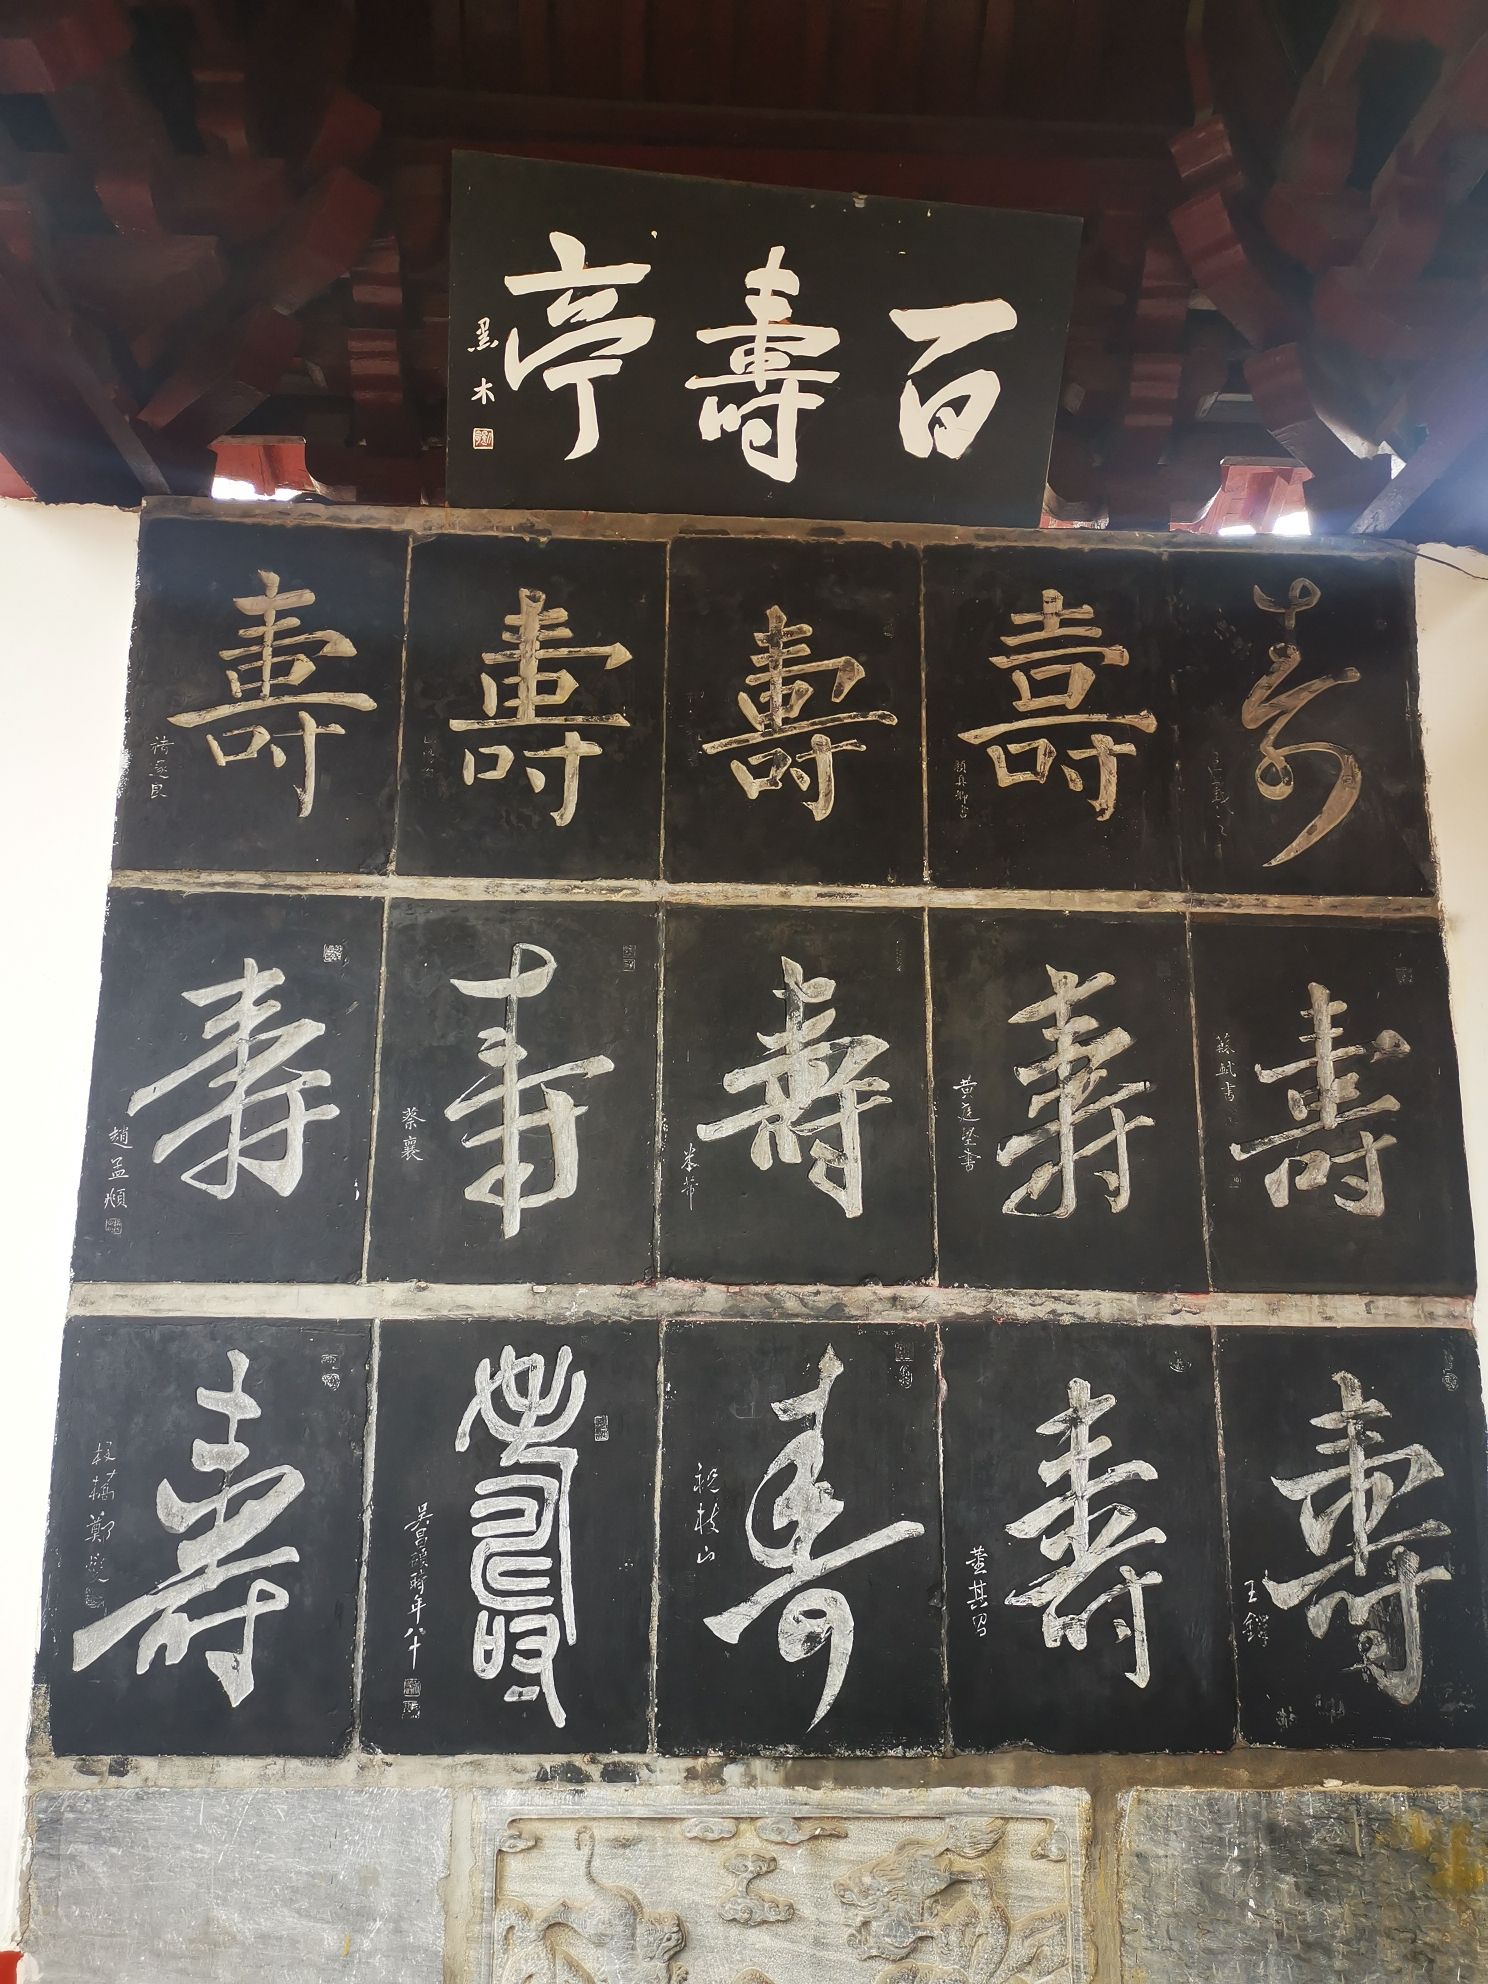 百壽亭
墨木
壽
壽
顏真卿書
壽
壽
壽
褚遂良
壽
蘇軾書
壽
黃庭堅書
壽
米芾
壽
蔡襄
壽
趙孟頫
壽
王鐸
壽
董其昌
壽
祝枝山
壽
吳昌碩時年八十
壽
板橋鄭燮